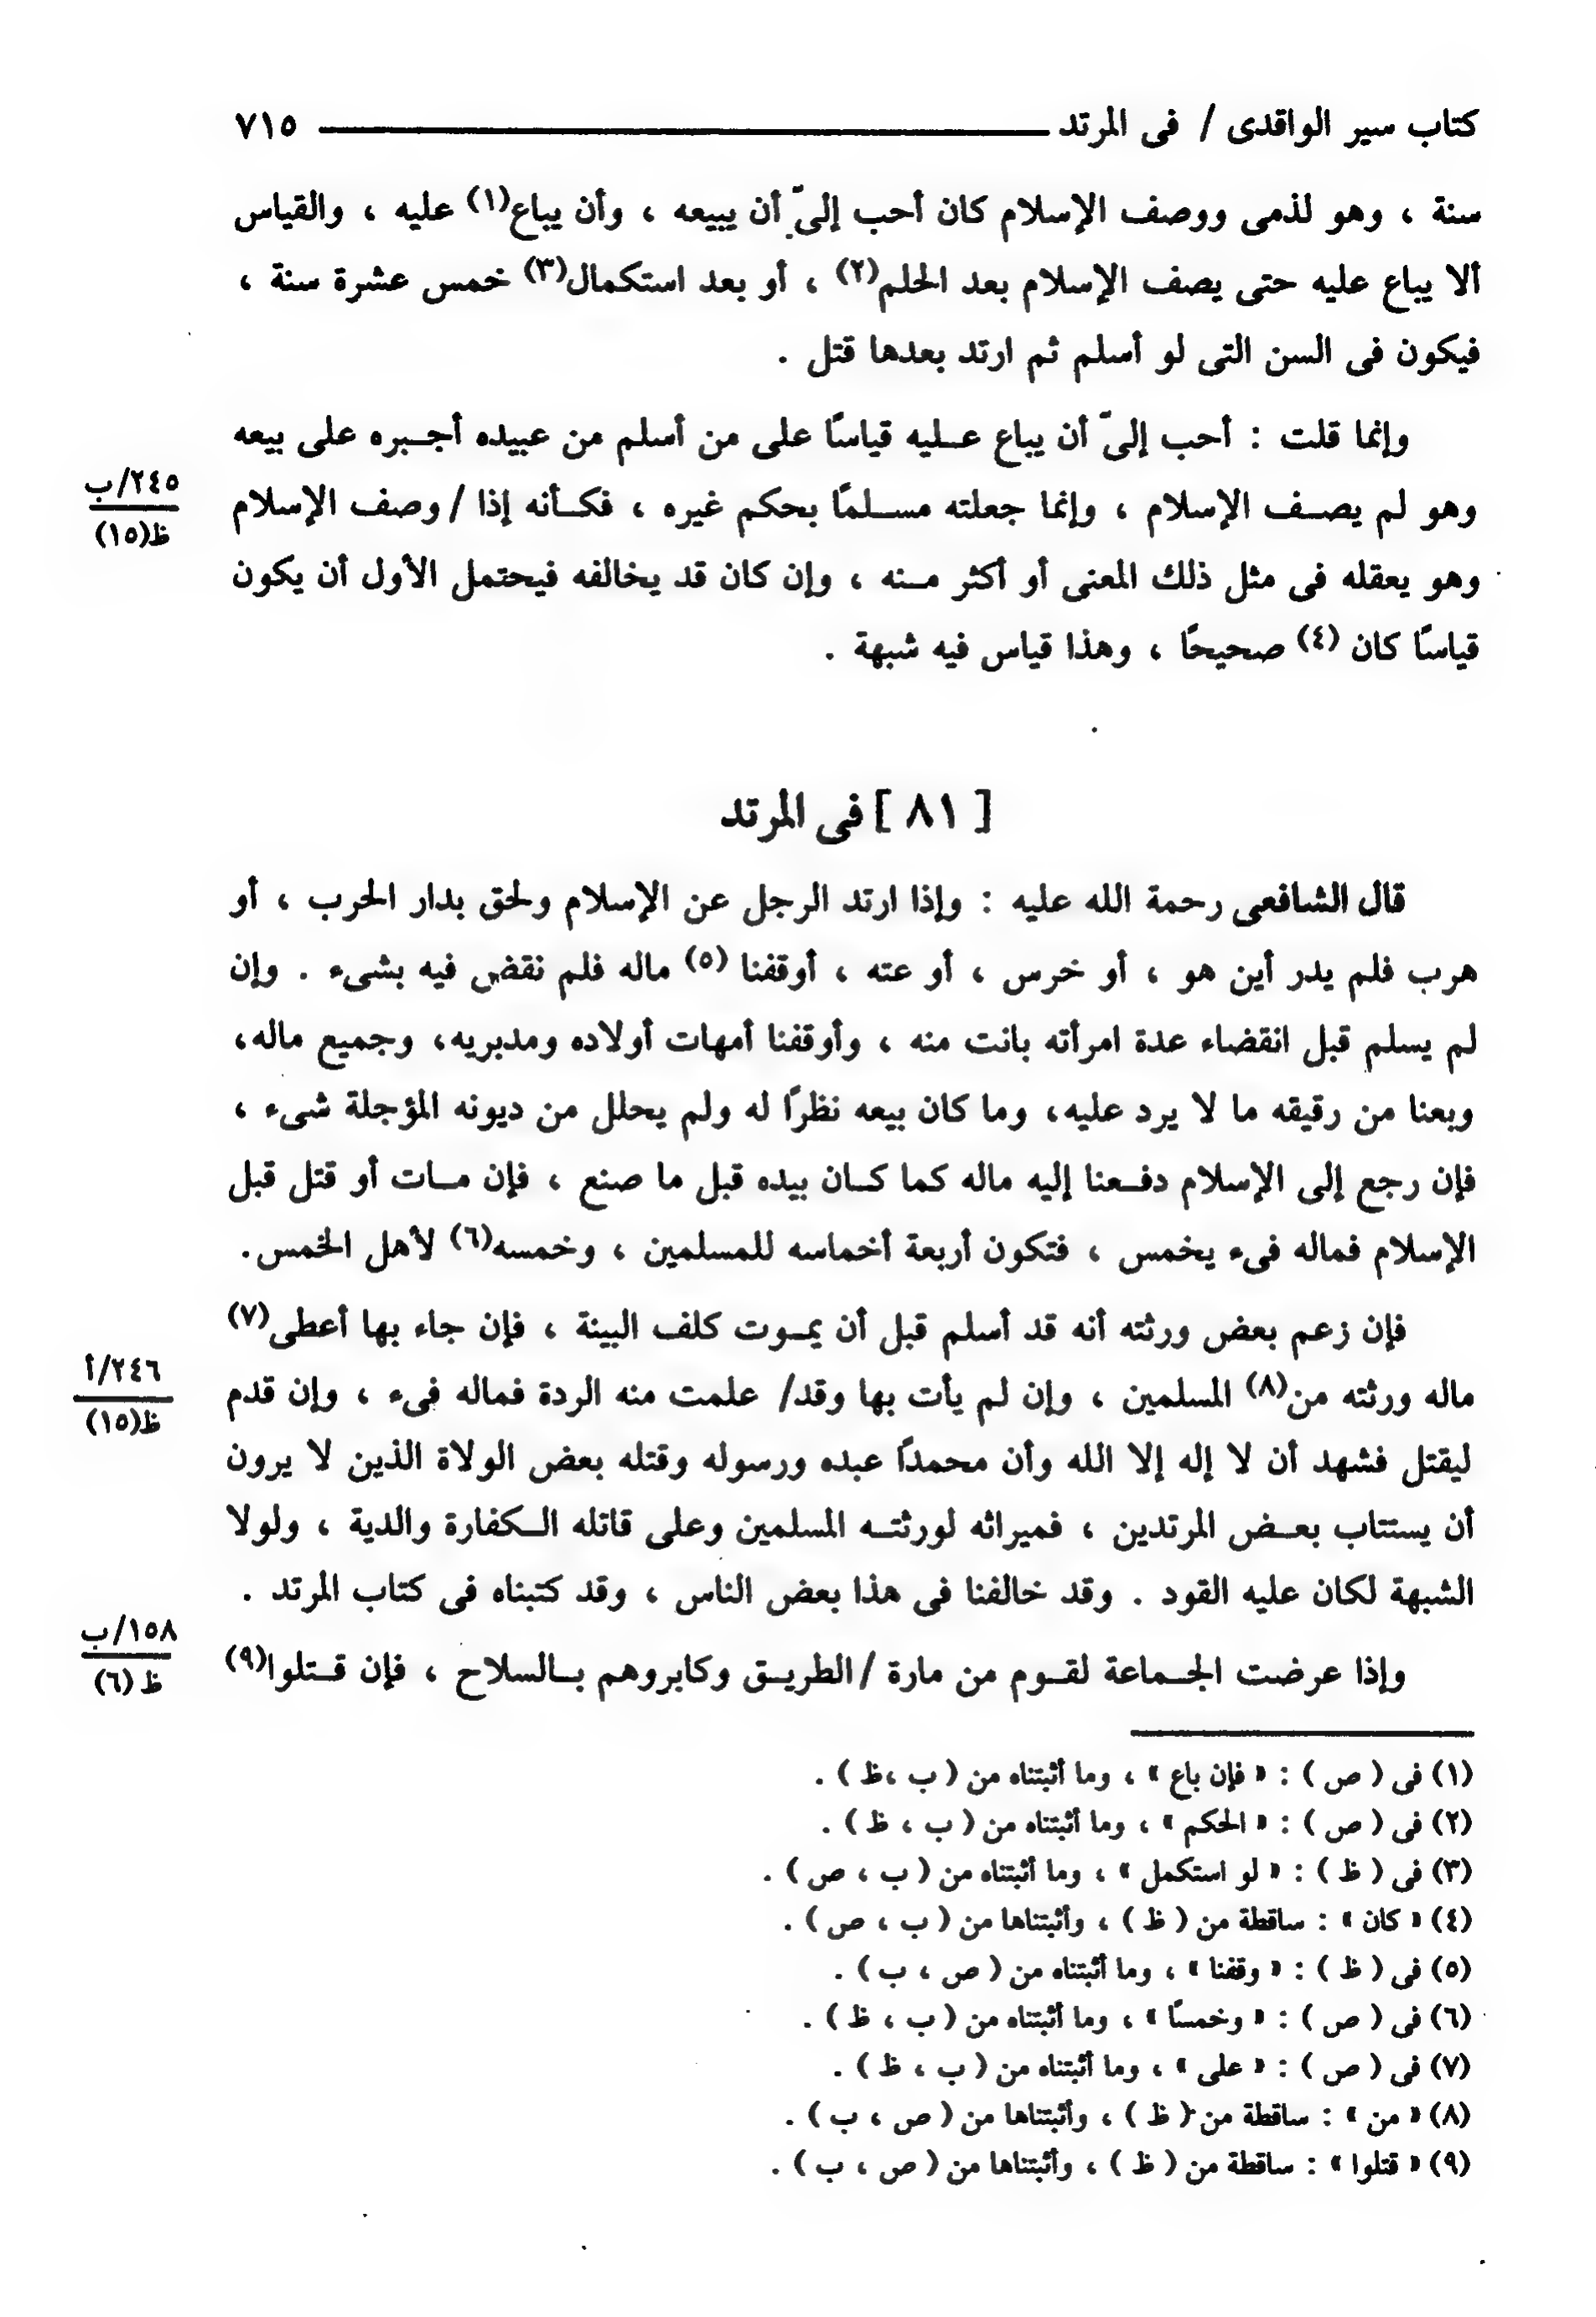 كتاب سير الواقدى / فى المرتد ٧١٥
سنة ، وهو لذمى ووصف الإسلام كان أحب إلىّ أن يبيعه ، وأن يباع(١) عليه ، والقياس
ألا يباع عليه حتى يصف الإسلام بعد الحلم(٢) ، أو بعد استكمال(٣) خمس عشرة سنة ،
فيكون فى السن التى لو أسلم ثم ارتد بعدها قتل .
وإنما قلت : أحب إلىّ أن يباع عليه قياسًا على من أسلم من عبيده أجبره على بيعه
٢٤٥/ب
وهو لم يصف الإسلام ، وإنما جعلته مسلمًا بحكم غيره ، فكأنه إذا / وصف الإسلام
ظ(١٥)
وهو يعقله فى مثل ذلك المعنى أو أكثر منه ، وإن كان قد يخالفه فيحتمل الأول أن يكون
قياسًا كان (٤) صحيحًا ، وهذا قياس فيه شبهة .
[ ٨١ ] فى المرتد
قال الشافعى رحمة الله عليه : وإذا ارتد الرجل عن الإسلام ولحق بدار الحرب ، أو
هرب فلم يدر أين هو ، أو خرس ، أو عته ، أوقفنا (٥) ماله فلم نقض فيه بشىء . وإن
لم يسلم قبل انقضاء عدة امرأته بانت منه ، وأوقفنا أمهات أولاده ومدبريه، وجميع ماله،
وبعنا من رقيقه ما لا يرد عليه، وما كان بيعه نظرًا له ولم يحلل من ديونه المؤجلة شىء ،
فإن رجع إلى الإسلام دفعنا إليه ماله كما كان بيده قبل ما صنع ، فإن مات أو قتل قبل
الإسلام فماله فىء يخمس ، فتكون أربعة أخماسه للمسلمين ، وخمسه(٦) لأهل الخمس.
فإن زعم بعض ورثته أنه قد أسلم قبل أن يموت كلف البينة ، فإن جاء بها أعطى(٧)
٢٤٦/أ
ماله ورثته من(٨) المسلمين ، وإن لم يأت بها وقد/ علمت منه الردة فماله فىء ، وإن قدم
ظ(١٥)
ليقتل فشهد أن لا إله إلا الله وأن محمدًا عبده ورسوله وقتله بعض الولاة الذين لا يرون
أن يستتاب بعض المرتدين ، فميراثه لورثته المسلمين وعلى قاتله الكفارة والدية ، ولولا
الشبهة لكان عليه القود . وقد خالفنا فى هذا بعض الناس ، وقد كتبناه فى كتاب المرتد .
١٥٨/ب
وإذا عرضت الجماعة لقوم من مارة /الطريق وكابروهم بالسلاح ، فإن قتلوا(٩)
ظ (٦)
(١) فى ( ص ) : « فإن باع » ، وما أثبتناه من ( ب ،ظ ) .
(٢) فى ( ص ) : « الحكم » ، وما أثبتناه من ( ب ، ظ ) .
(٣) فى ( ظ ) : « لو استكمل » ، وما أثبتناه من ( ب ، ص ) .
(٤) « كان » : ساقطة من ( ظ ) ، وأثبتناها من ( ب ، ص ) .
(٥) فى ( ظ ) : « وقفنا » ، وما أثبتناه من ( ص ، ب ) .
(٦) فى ( ص ) : « وخمسًا » ، وما أثبتناه من ( ب ، ظ ) .
(٧) فى ( ص ) : « على » ، وما أثبتناه من ( ب ، ظ ) .
(٨) « من » : ساقطة من ( ظ ) ، وأثبتناها من ( ص ، ب ) .
(٩) « قتلوا » : ساقطة من ( ظ ) ، وأثبتناها من ( ص ، ب ) .